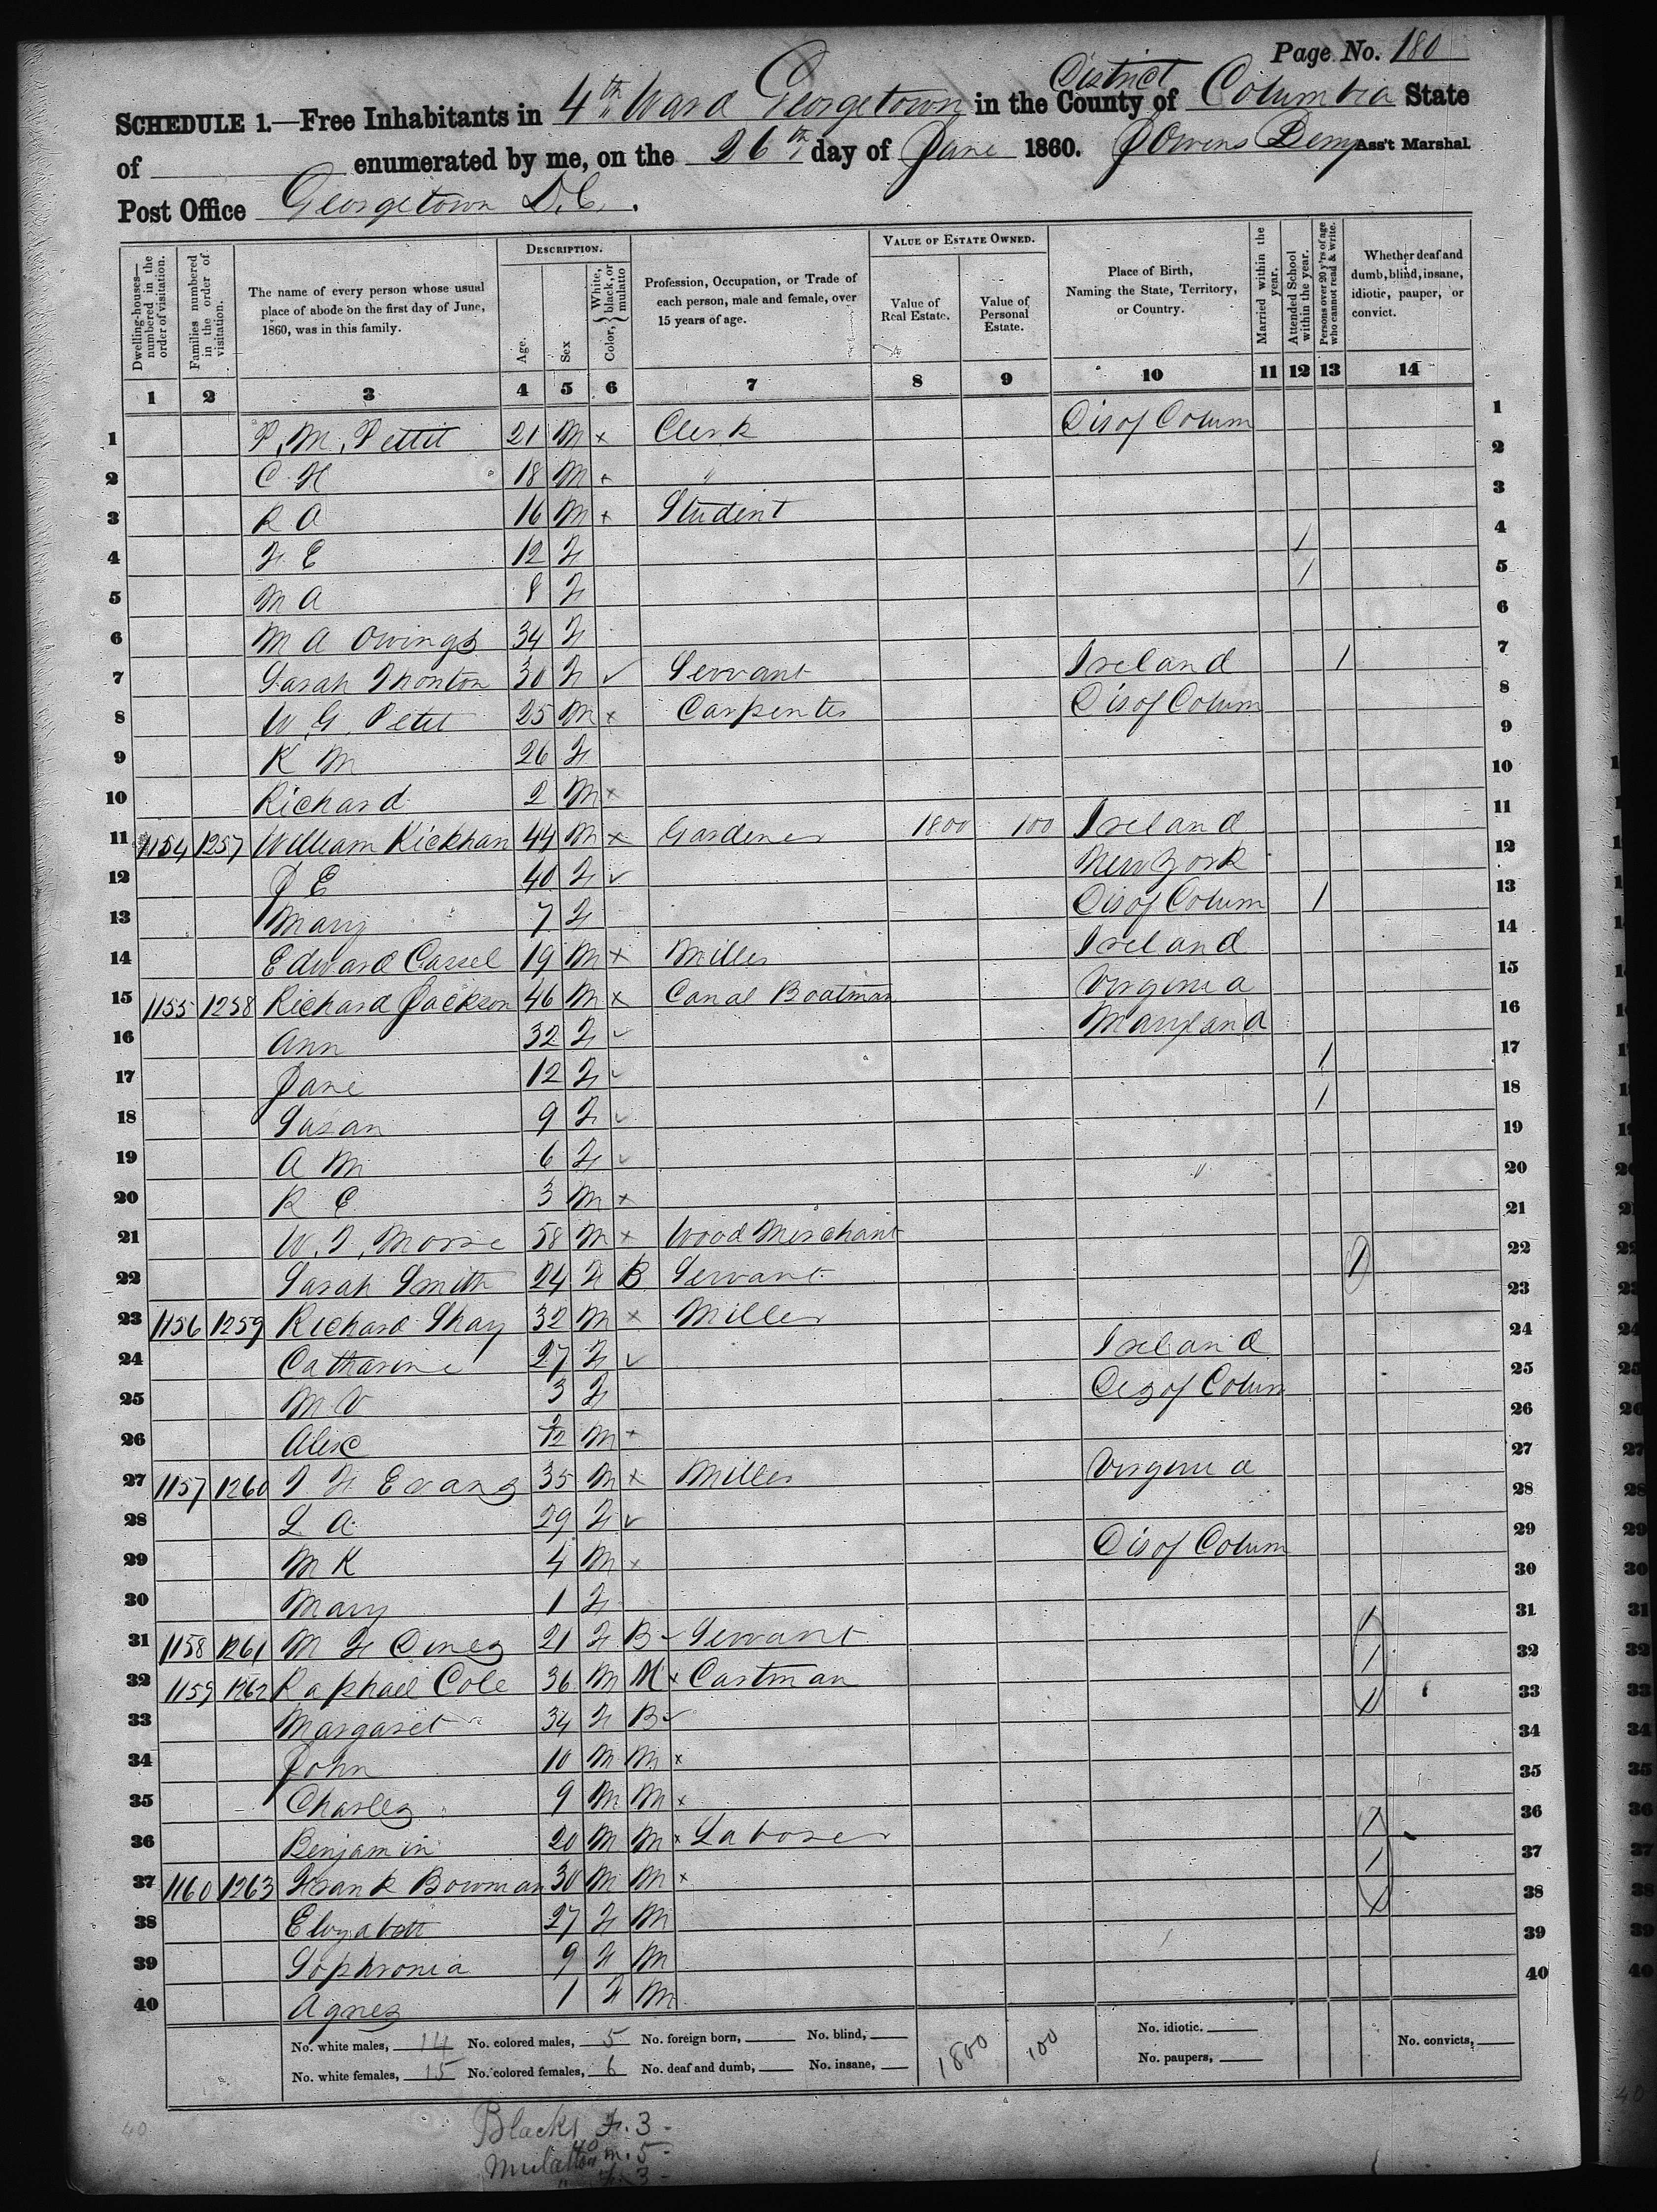 Page No. 180
SCHEDULE 1.—Free Inhabitants in 4th Ward Georgetown in the County of District Columbia State
of enumerated by me, on the 26th day of June 1860. J Owens Ass't Marshal
Post Office Georgetown D.C.
Dwelling-houses—numbered in the order of visitation.
Families numbered in the order of visitation.
The name of every person whose usual place of abode on the first day of June, 1860, was in this family.
DESCRIPTION.
Age.
Sex
Color, { White, black, or mulatto
Profession, Occupation, or Trade of each person, male and female, over 15 years of age.
VALUE OF ESTATE OWNED.
Value of Real Estate.
Value of Personal Estate.
Place of Birth, Naming the State, Territory, or Country.
Married within the year.
Attended School within the year.
Persons over 20 y'rs of age who cannot read & write.
Whether deaf and dumb, blind, insane, idiotic, pauper, or convict.
1 2 3 4 5 6 7 8 9 10 11 12 13 14
1 P. M. Pettit 21 M x Clerk Dis of Colum 1
2 C H 18 M x " 2
3 R A 16 M x Student 3
4 F E 12 F / 4
5 M A 8 F / 5
6 M A Owings 34 F 6
7 Sarah Thonton 30 F ✓ Servant Ireland / 7
8 W. G. Petit 25 M x Carpenter Dis of Colum 8
9 K M 26 F 9
10 Richard 2 M x 10
11 1154 1257 William Kickhan 44 M x Gardener 1800 100 Ireland 11
12 J E 40 F ✓ New York 12
13 Mary 7 F Dis of Colum / 13
14 Edward Cassel 19 M x Miller Ireland 14
15 1155 1258 Richard Jackson 46 M x Canal Boatman Virginia 15
16 Ann 32 F ✓ Maryland 16
17 Jane 12 F ✓ / 17
18 Susan 9 F ✓ / 18
19 A M 6 F ✓ 19
20 R E 3 M x " 20
21 W. T. Morse 58 M x Wood Merchant 21
22 Sarah Smith 24 F B Servant / 22
23 1156 1259 Richard Shay 32 M x Miller 23
24 Catharine 27 F ✓ Ireland 24
25 M V 3 F Dis of Colum 25
26 Alex /12 M x 26
27 1157 1260 T F Evans 35 M x Miller Virginia 27
28 L A 29 F ✓ 28
29 M K 4 M x Dis of Colum 29
30 Mary 1 F 30
31 1158 1261 M F Dines 21 F B ✓ Servant / 31
32 1159 1262 Raphael Cole 36 M M x Cartman / 32
33 Margaret 34 F B ✓ / 33
34 John 10 M M x 34
35 Charles 9 M M x 35
36 Benjamin 20 M M x Laborer / 36
37 1160 1263 Frank Bowman 30 M M x / 37
38 Elizabeth 27 F M / 38
39 Sophronia 9 F M 39
40 Agnes 1 F M 40
No. white males, 14 No. colored males, 5 No. foreign born, No. blind, 1800 100 No. idiotic. No. convicts,
No. white females, 15 No. colored females, 6 No. deaf and dumb, No. insane, No. paupers,
40
Blacks F. 3 -
40
Mulattoes m. 5 -
" F. 3 -